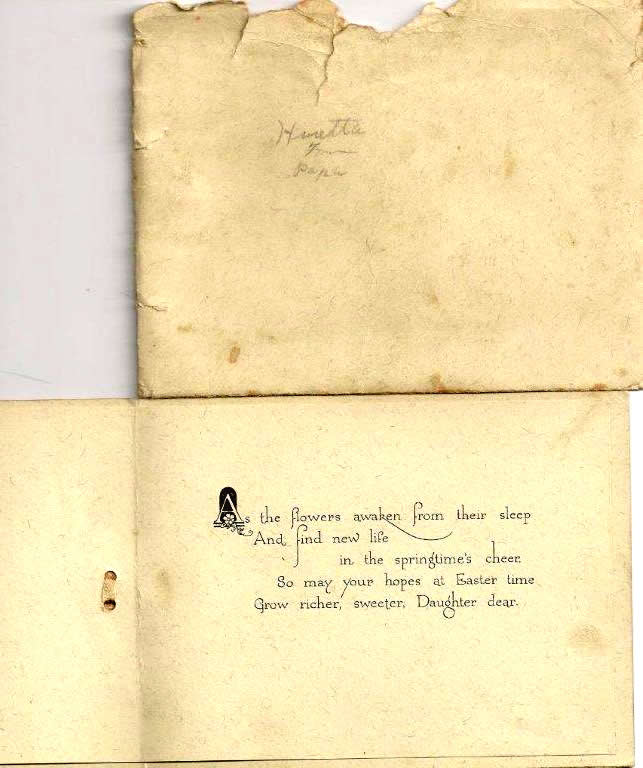 From
Papa
As the flowers awaken from their sleep
And find new life
in the springtime's cheer.
So may your hopes at Easter time
Grow richer, sweeter, Daughter dear.